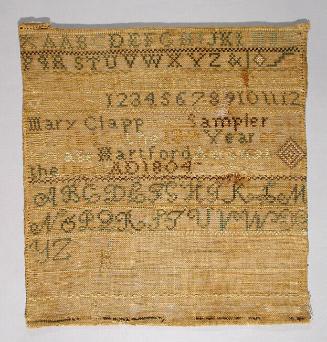 DEFGHIJKL
PQRSTUVWXYZ&
123456789101112
Mary Clapp Sampler
Year
Hartford
the AD1804
ABCDEFGHIKLM
NOPQRSTUVWX
YZ